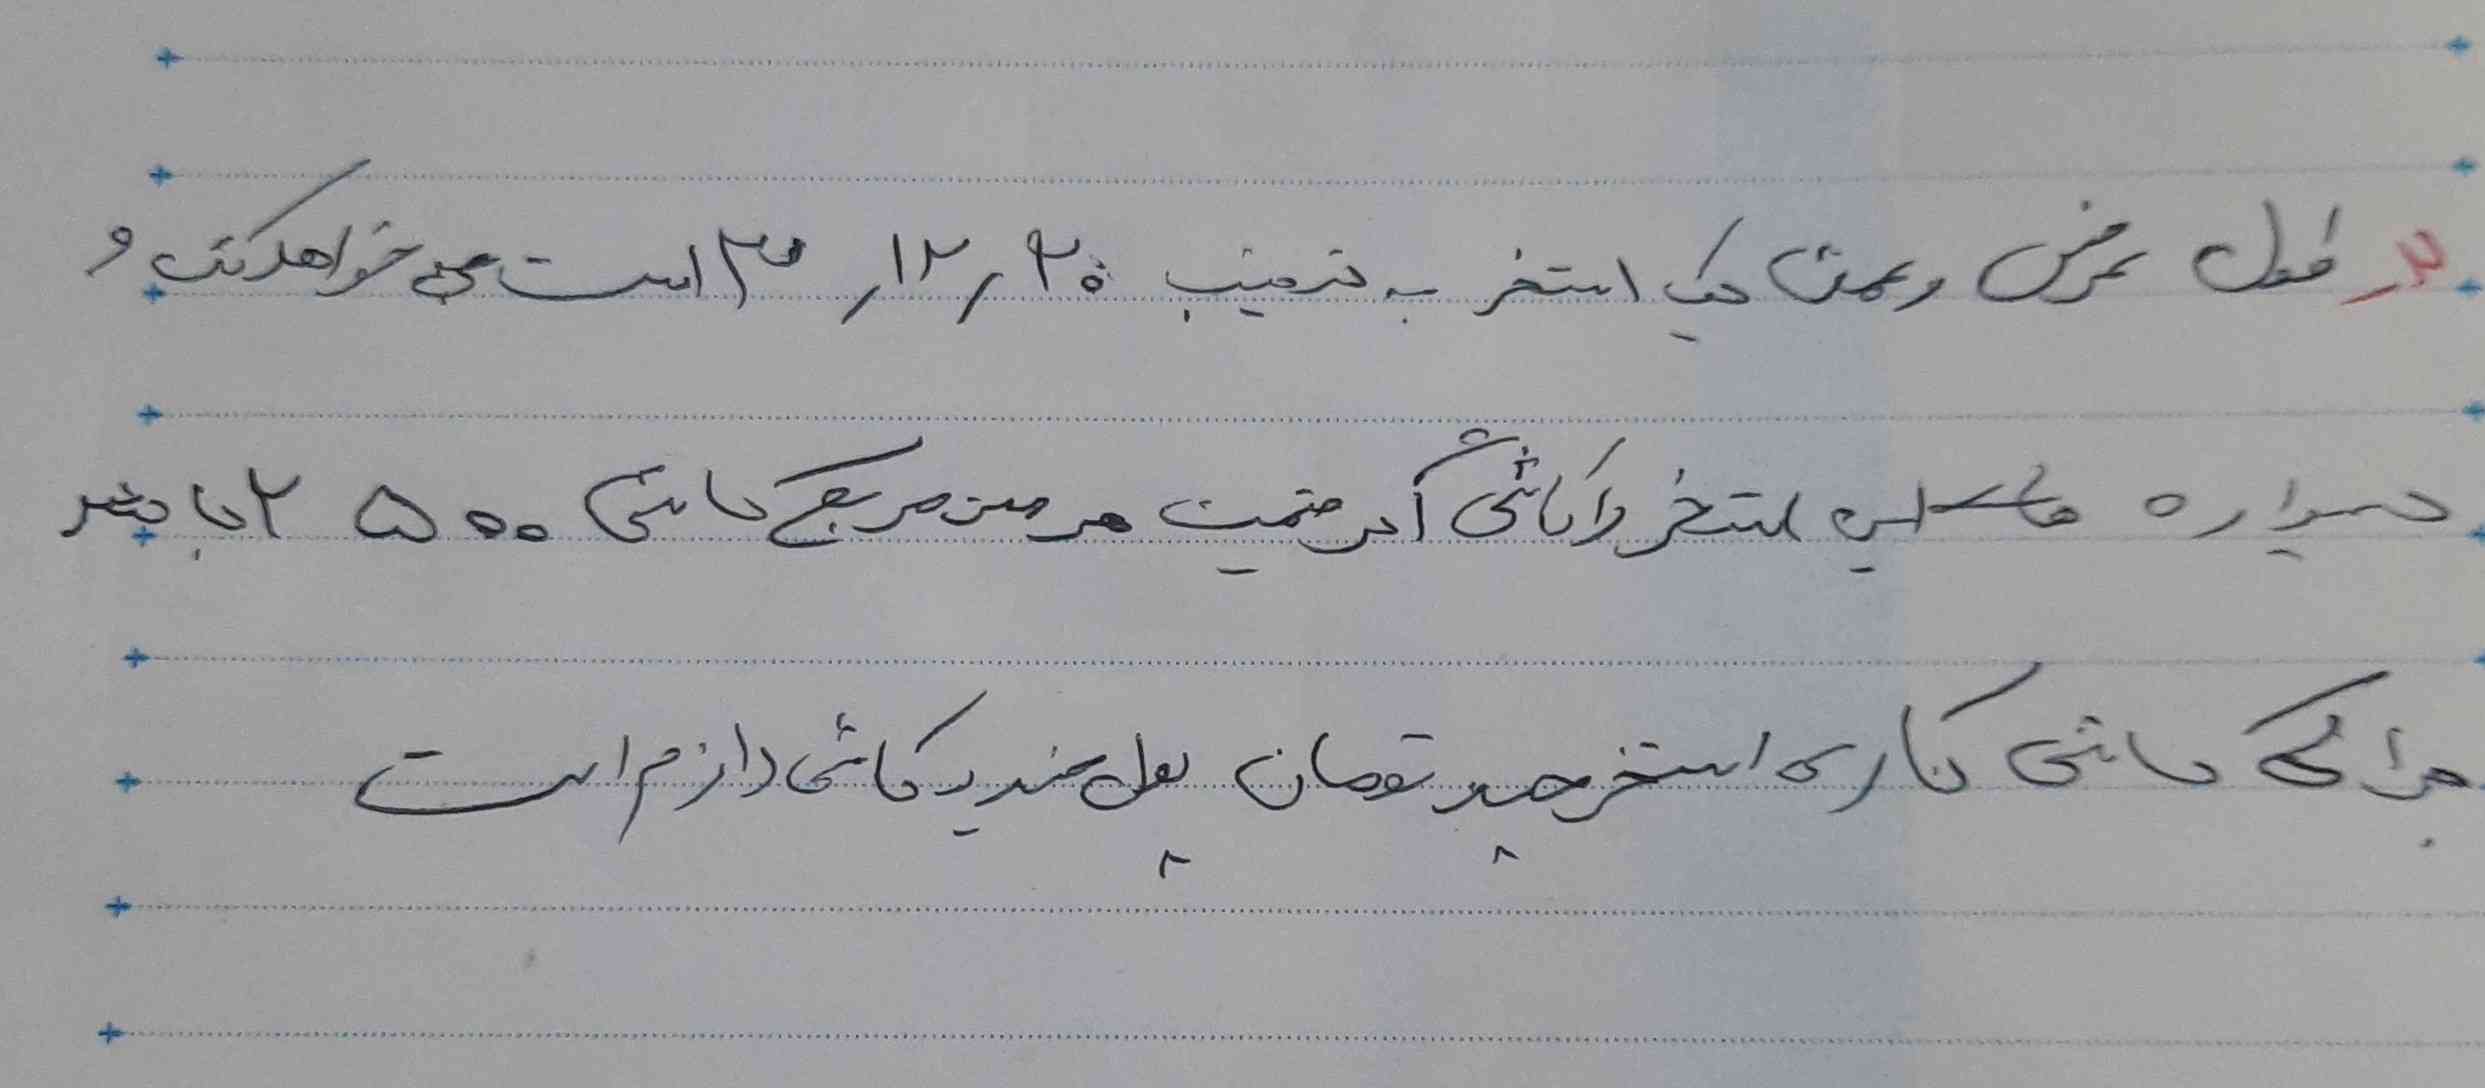 ۲ـ طول عرض و عمق یک استخر به ترتیب ۲۰٫ ۱۲٫ ۳م است می خواهد کف و
دیواره های این استخر را کاشی اگر قیمت هر متر مربع کاشی ۲۵۰۰ تا باشد
برای کاشی کاری استخر چند تومان پول خرید کاشی لازم است